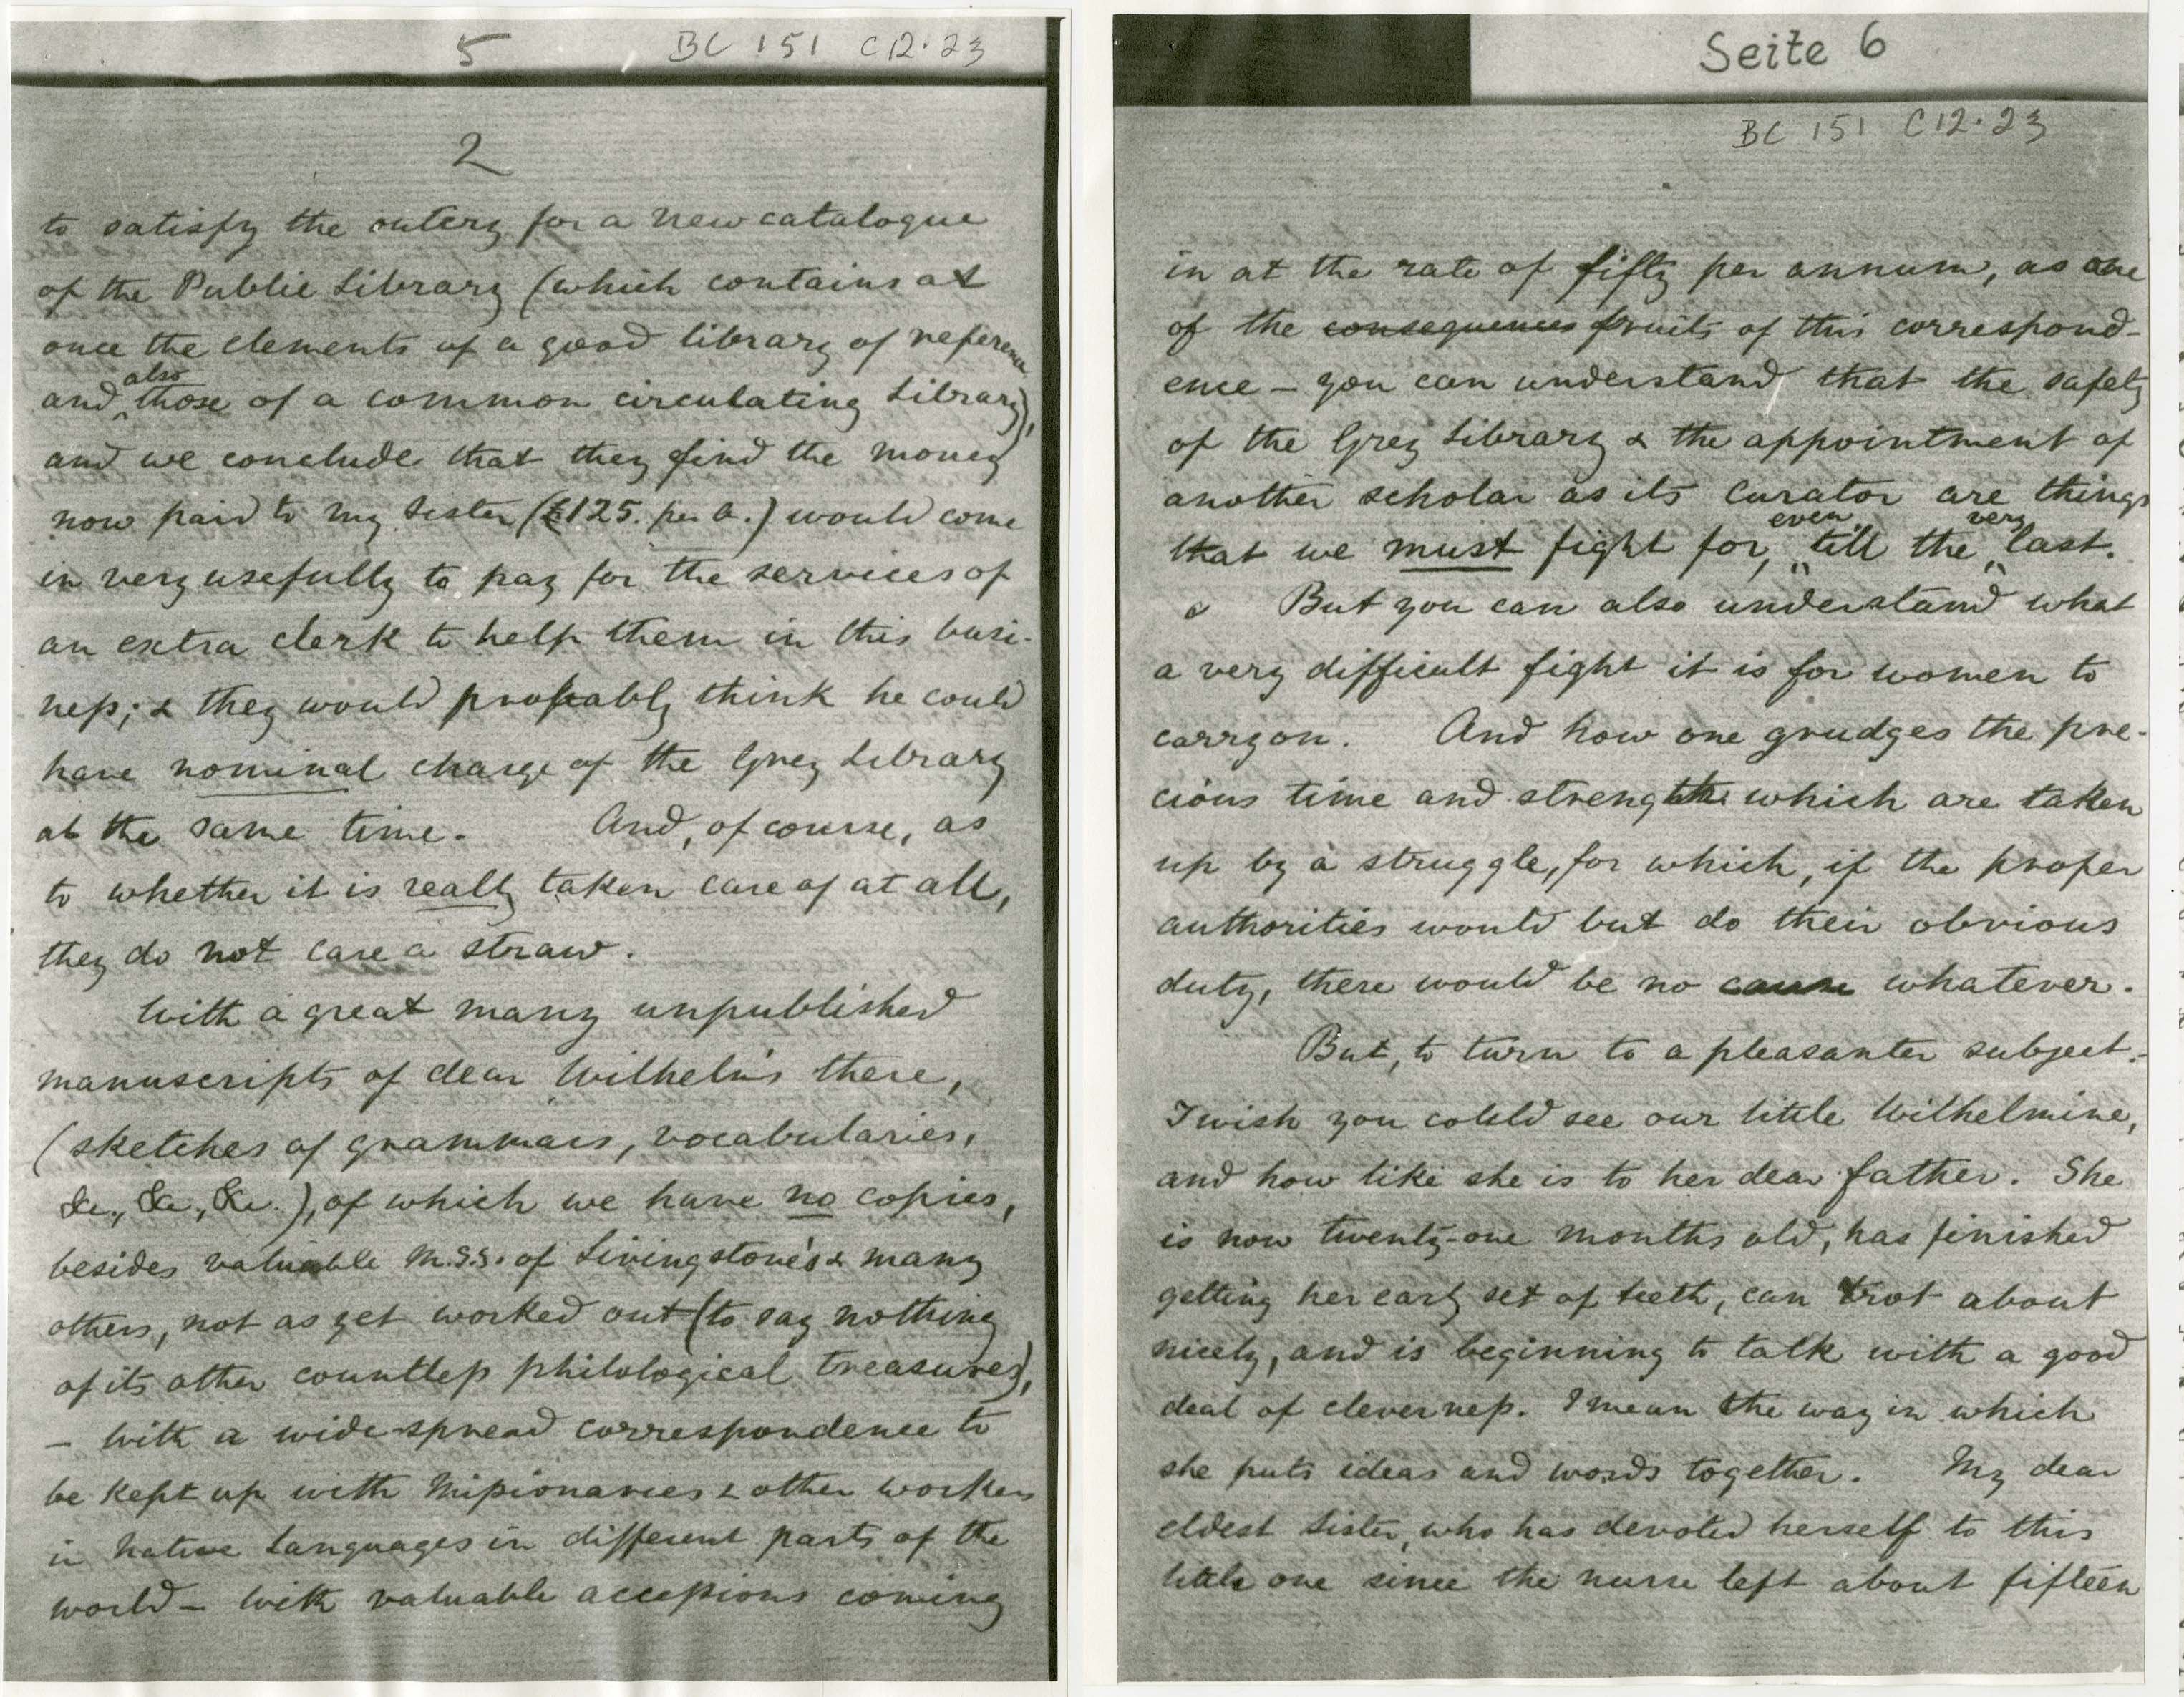 5 BC 151 C12.23
2
to satisfy the outcry for a new catalogue
of the Public Library (which contains at
once the elements of a good library of reference,
also
and those of a common circulating Library),
and we conclude that they find the money
now paid to my sister (£125. per a.) would come
in very usefully to pay for the services of
an extra clerk to help them in this busi-
ness; & they would probably think he could
have nominal charge of the Grey Library
at the same time. And, of course, as
to whether it is really taken care of at all,
they do not care a straw.
With a great many unpublished
manuscripts of dear Wilhelm's there,
(sketches of grammars, vocabularies,
&c., &c., &c.), of which we have no copies,
besides valuable M.S.S. of Livingstone's & many
others, not as yet worked out (to say nothing
of its other countless philological treasures),
— with a wide-spread correspondence to
be kept up with Missionaries & other workers
in Native Languages in different parts of the
world — with valuable accessions coming
Seite 6
BC 151 C12.23
in at the rate of fifty per annum, as one
of the consequences fruits of this correspond-
ence — you can understand that the safety
of the Grey Library & the appointment of
another scholar as its Curator are things
even very
that we must fight for, till the last.
But you can also understand what
a very difficult fight it is for women to
carry on. And how one grudges the pre-
cious time and strength which are taken
up by a struggle, for which, if the proper
authorities would but do their obvious
duty, there would be no cause whatever.
But, to turn to a pleasanter subject.—
I wish you could see our little Wilhelmine,
and how like she is to her dear father. She
is now twenty-one months old, has finished
getting her early set of teeth, can trot about
nicely, and is beginning to talk with a good
deal of cleverness. I mean the way in which
she puts ideas and words together. My dear
eldest sister, who has devoted herself to this
little one since the nurse left about fifteen